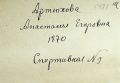 Артюхова
Анастасия Егоровна
1870
Спортивная N1